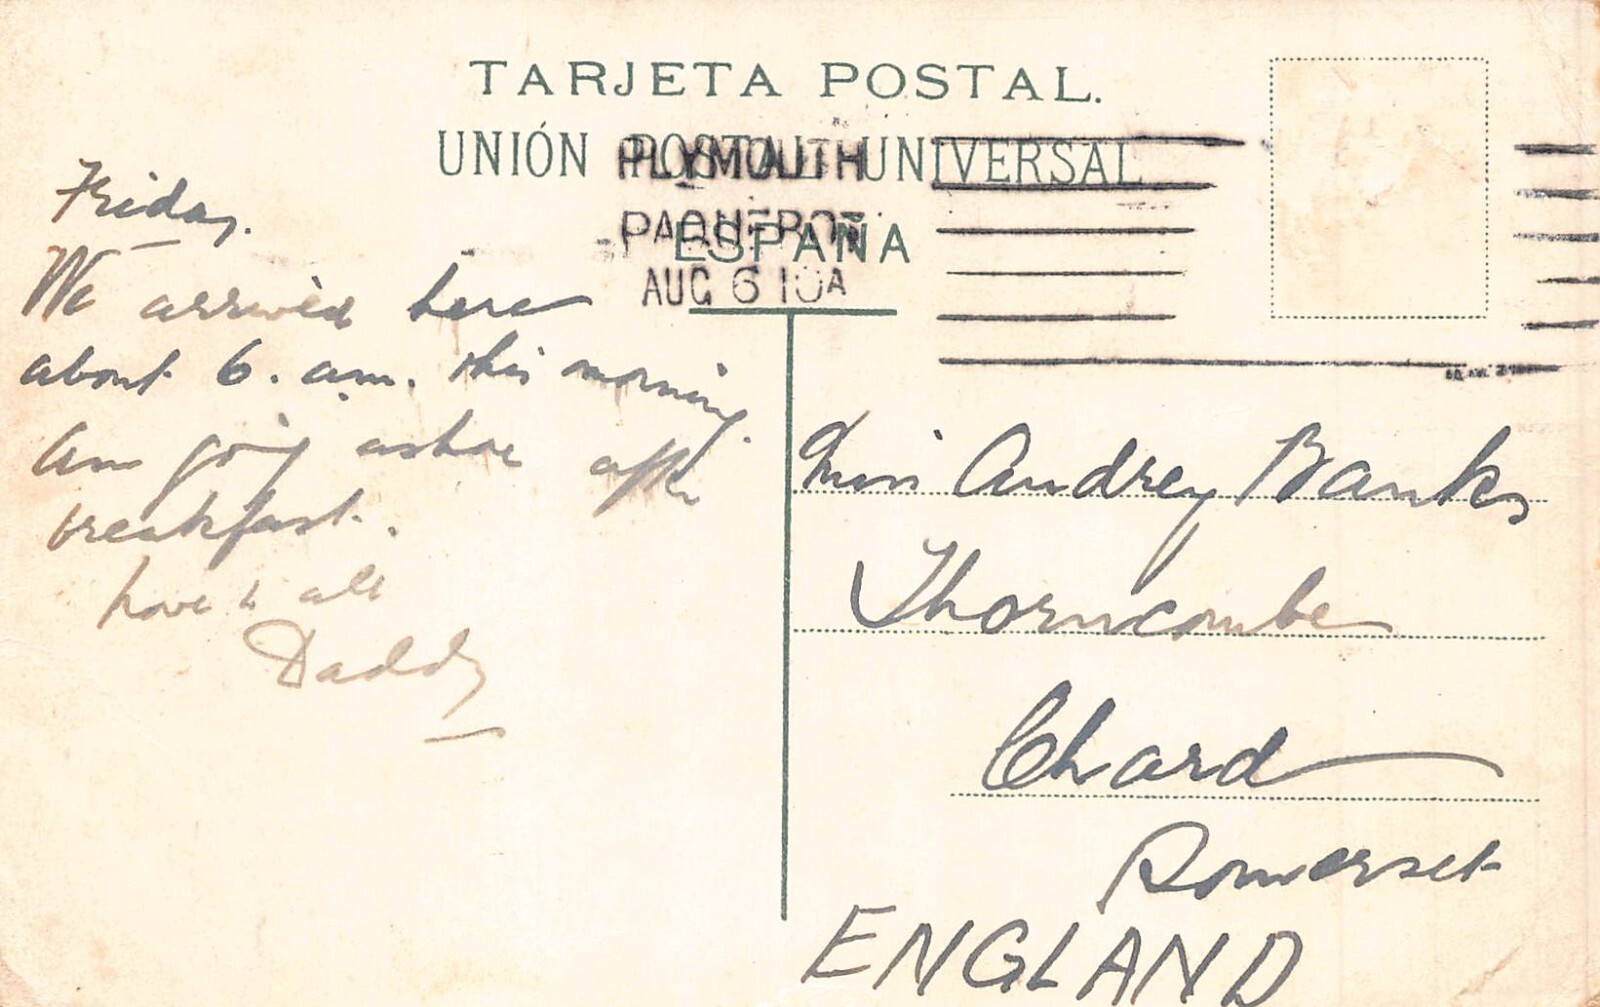 TARJETA POSTAL.
UNIÓN POSTAL UNIVERSAL
ESPAÑA
PLYMOUTH
PAQUEBOT
AUG 6 10A
Friday.
We arrived here
about 6. am. this morning.
Am going ashore after
breakfast.
Love to all
Daddy
Miss Audrey Banks
Thorncombe
Chard
Somerset
ENGLAND